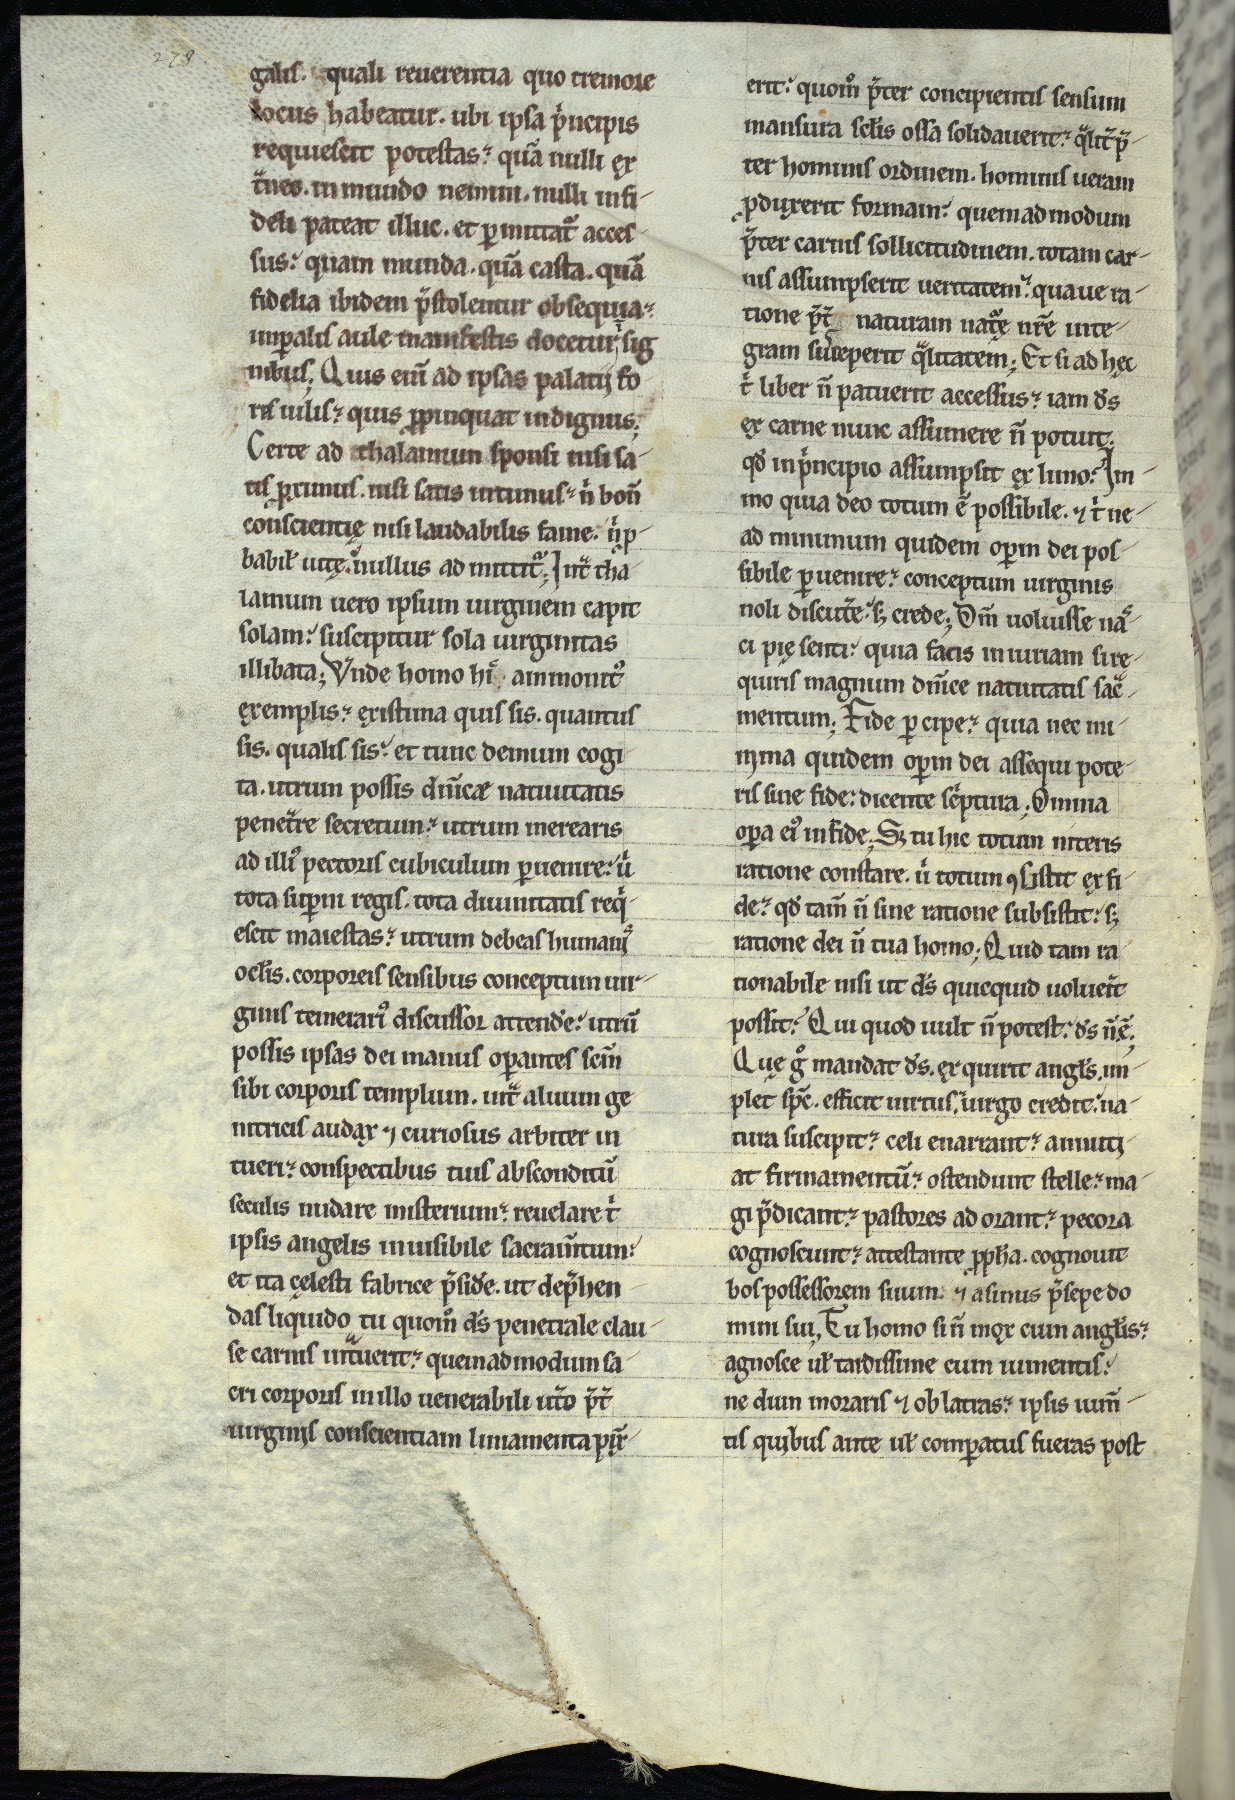 278
galis. quali reuerentia quo tremore
locus habeatur. ubi ipsa p̍ncipis
requiescit potestas? quā nulli ex
t̄neo. inmundo nemini. nulli infi-
deli pateat illuc. et p̱mittat᷑ acces-
sus: quam munda. quā casta. quā
fidelia ibidem p̄stolentur obsequia?
imp̱alis aule manifestis docetur sig
nibus; Quis eni̅ ad ipsas palatij fo
res uilis? quis p̱pinquat indignus;
Certe ad thalamum sponsi nisi sa-
tis p̱ximus. nisi satis intimus? n̍ bone̅
conscientię nisi laudabilis fame. n̍ p̱-
babil̕ uitę. nullus admittit᷑; Int᷑ tha
lamum uero ipsum uirginem capit
solam: suscipitur sola uirginitas
illibata; Vnde homo hi᷑ ammonit᷒
exemplis? existima quis sis. quantus
sis. qualis sis: et tunc demum cogi-
ta. utrum possis dn̄icæ natiuitatis
penet᷑re secretum? utrum merearis
ad illi᷒ pectoris cubiculum p̱uenire: u̍
tota sup̱ni regis. tota diuinitatis req̍-
escit maiestas? utrum debeas humanis
ocl̕is. corporeis sensibus conceptum uir-
ginis temerari᷒ discussor attende᷑: utrū
possis ipsas dei manus op̱antes scm̄
sibi corporis templum. int᷑ aluum ge
nitricis audax ⁊ curiosus arbiter in-
tueri? conspectibus tuis absconditū
seculis nudare misterium? reuelare t̍
ipsis angelis inuisibile sacram̄tum:
et ita cęlesti fabrice p̄side᷑. ut dep̄hen-
das liquido tu quom̊ d̄s penetrale clau-
se carnis int᷑uerit? quemadmodum sa-
cri corporis in illo uenerabili ut᷑o p̄t᷑
uirginis conscientiam liniamenta pi̅x᷑-
erit: quom̊ p̄ter concipientis sensum
mansura scl̕is ossa solidauerit? q̄lit᷑ p̄-
ter hominis ordinem. hominis ueram
p̱duxerit formam: quemadmodum
p̄ter carnis sollicitudinem. totam car-
nis assumpserit ueritatem: quaue ra-
tione p̄t᷑ naturam nat᷑ę nr̄e inte-
gram susceperit q̄litatem; Et si ad hęc
t̍ liber n̄ patuerit accessus? iam d̄s
ex carne nunc assumere n̄ potuit.
qd̄ in p̍ncipio assumpsit ex limo? Im-
mo quia deo totum ē possibile. ⁊ t̍ ne-
ad minimum quidem op̱um dei pos-
sibile p̱uenire? conceptum uirginis
noli discut᷑e: s; crede; Dm̄ uoluisse nas-
ci pię senti: quia facis iniuriam si re-
quiris magnum dn̄ice natiuitatis sac᷑-
mentum; Fide p̱cipe? quia nec mi-
nima quidem op̱um dei assequi pote-
ris sine fide: dicente sc̍ptura; Omnia
op̱a ei᷒ infide; S; tu hic totum niteris
ratione constare. u̍ totum ꝯsistit ex fi-
de? qd̄ tam̄ n̄ sine ratione subsistit: s;
ratione dei n̄ tua homo; Quid tam ra
tionabile nisi ut d̄s quicquid uoluerit
possit? Qui quod uult n̄ potest: d̄s n̄ ē;
Quę g̊ mandat d̄s. exquirit angl̕s. im-
plet sp̄c. efficit uirtus, uirgo credit: na-
tura suscipit? celi enarrant? annuti-
at firmamentū? ostendunt stelle? ma-
gi p̄dicant? pastores adorant? pecora
cognoscunt? attestante p̱pha. cognouit
bos possessorem suum. ⁊ asinus p̄sepe do
mini sui, Tu homo si n̄ mox cum angl̕is?
agnosce ul̕ tardissime cum iumentis:
ne dum moraris ⁊ oblatras? ipsis ium̄-
tis quibus ante ul̕ comp̱atus fueras post